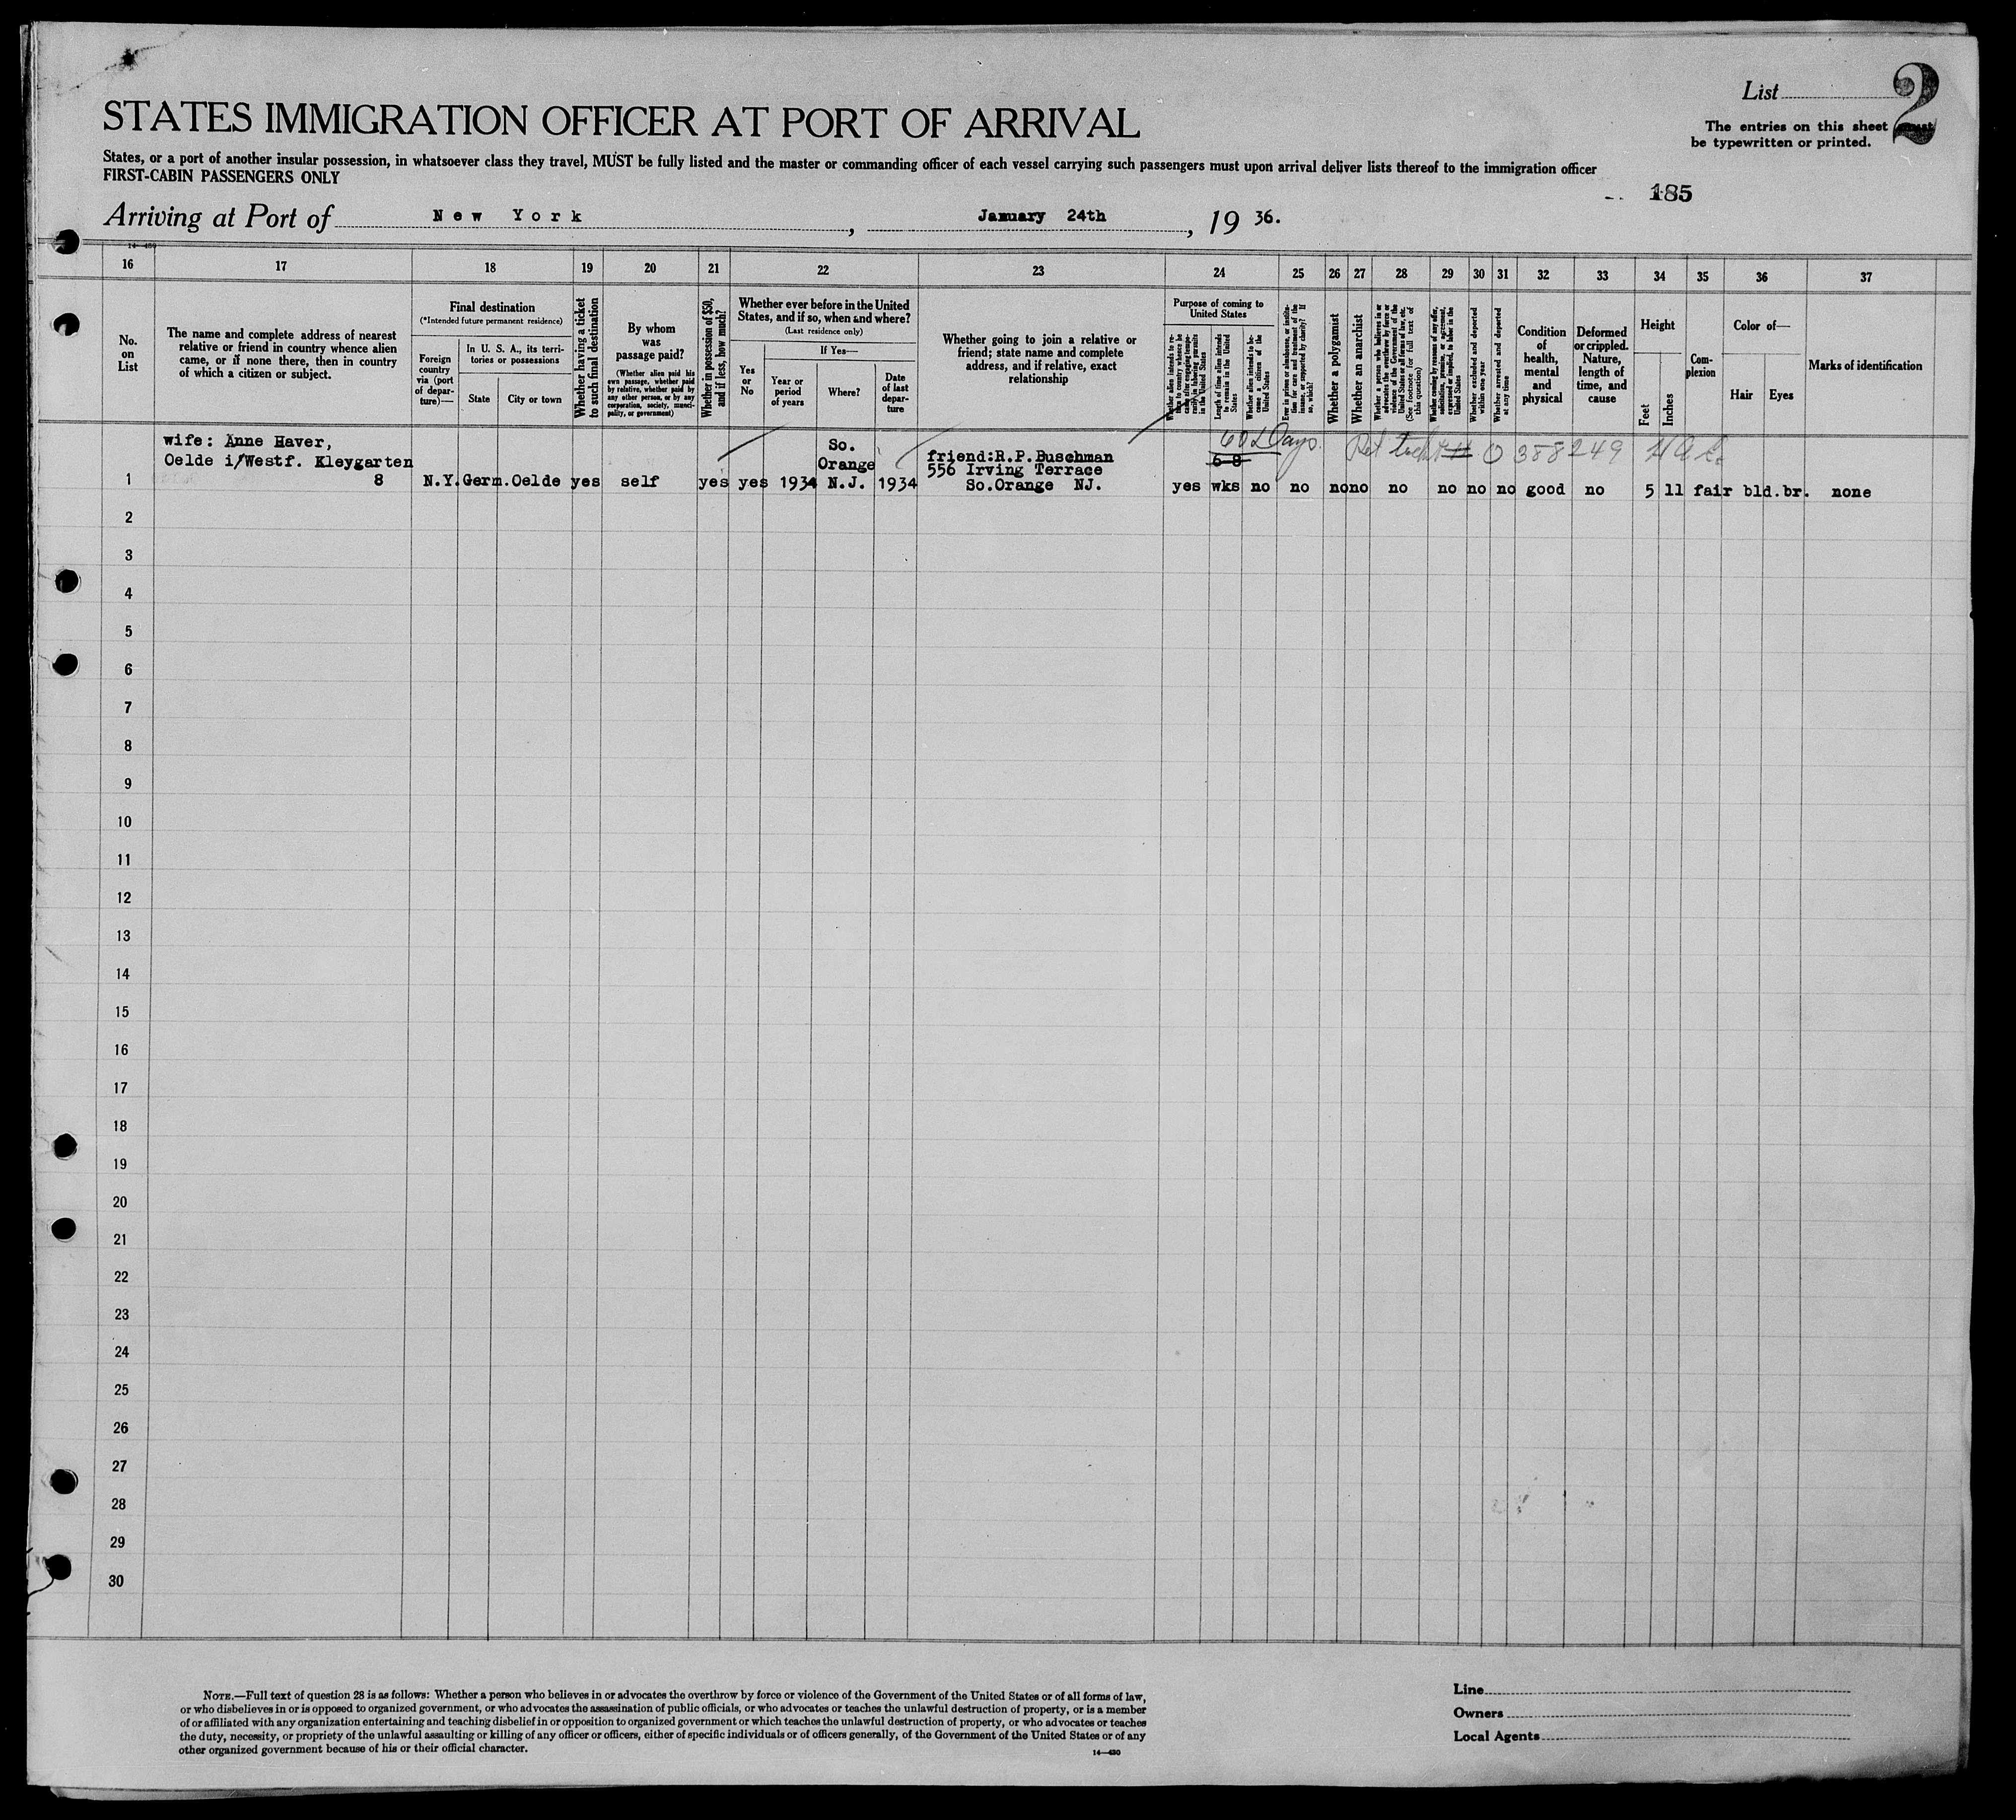 List 2
STATES IMMIGRATION OFFICER AT PORT OF ARRIVAL
The entries on this sheet must
be typewritten or printed.
States, or a port of another insular possession, in whatsoever class they travel, MUST be fully listed and the master or commanding officer of each vessel carrying such passengers must upon arrival deliver lists thereof to the immigration officer
FIRST-CABIN PASSENGERS ONLY
185
Arriving at Port of New York, January 24th, 19 36.
14—430
16 17 18 19 20 21 22 23 24 25 26 27 28 29 30 31 32 33 34 35 36 37
No.
on
List
The name and complete address of nearest
relative or friend in country whence alien
came, or if none there, then in country
of which a citizen or subject.
Final destination
(*Intended future permanent residence)
Foreign
country
via (port
of depar-
ture)—
In U. S. A., its terri-
tories or possessions
State
City or town
Whether having a ticket
to such final destination
By whom
was
passage paid?
(Whether alien paid his
own passage, whether paid
by relative, whether paid by
any other person, or by any
corporation, society, munici-
pality, or government)
Whether in possession of $50,
and if less, how much?
Whether ever before in the United
States, and if so, when and where?
(Last residence only)
Yes
or
No
If Yes—
Year or
period
of years
Where?
Date
of last
depar-
ture
Whether going to join a relative or
friend; state name and complete
address, and if relative, exact
relationship
Purpose of coming to
United States
Whether alien intends to re-
turn to country whence he
came after engaging tempo-
rarily in laboring pursuits
in the United States
Length of time alien intends
to remain in the United
States
Whether alien intends to be-
come a citizen of the
United States
Ever in prison or almshouse, or institu-
tion for care and treatment of the
insane, or supported by charity? If
so, which?
Whether a polygamist
Whether an anarchist
Whether a person who believes in or
advocates the overthrow by force or
violence of the Government of the
United States or all forms of law, etc.
(See footnote for full text of
this question)
Whether coming by reasons of any offer,
solicitation, promise, or agreement,
expressed or implied, to labor in the
United States
Whether excluded and deported
within one year
Whether arrested and deported
at any time
Condition
of
health,
mental
and
physical
Deformed
or crippled.
Nature,
length of
time, and
cause
Height
Feet
Inches
Com-
plexion
Color of—
Hair
Eyes
Marks of identification
60 Days. 0 388249
wife: Anne Haver,
Oelde i/Westf. Kleygarten
8
So.
Orange
friend:R.P.Buschman
556 Irving Terrace
So.Orange NJ.
6-8
1 N.Y. Germ. Oelde yes self yes yes 1934 N.J. 1934 yes wks no no no no no no no no good no 5 11 fair bld. br. none
2
3
4
5
6
7
8
9
10
11
12
13
14
15
16
17
18
19
20
21
22
23
24
25
26
27
28
29
30
NOTE.—Full text of question 28 is as follows: Whether a person who believes in or advocates the overthrow by force or violence of the Government of the United States or of all forms of law,
or who disbelieves in or is opposed to organized government, or who advocates the assassination of public officials, or who advocates or teaches the unlawful destruction of property, or is a member
of or affiliated with any organization entertaining and teaching disbelief in or opposition to organized government or which teaches the unlawful destruction of property, or who advocates or teaches
the duty, necessity, or propriety of the unlawful assaulting or killing of any officer or officers, either of specific individuals or of officers generally, of the Government of the United States or of any
other organized government because of his or their official character.
14—430
Line
Owners
Local Agents